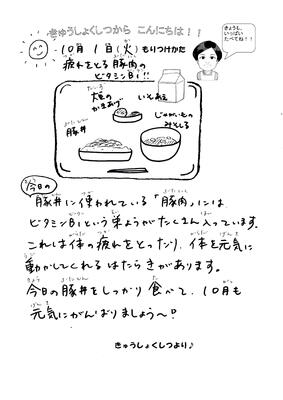 きゅうしょくしつから こんにちは！！
きょうも、
いっぱい
たべてね！！
10月 1日(火) もりつけかた
疲れをとる 豚肉の
ビタミンB1!!
だいず
大豆の
かきあげ
じゃがいもの
みそしる
ぶたどん
豚丼
きょう
今日の
豚丼に使われている「豚肉」には
ビタミンB1という栄ようがたくさん入っています。
これは体の疲れをとったり、体を元気に
動かしてくれるはたらきがあります。
今日の豚丼をしっかり食べて、10月も
元気にがんばりましょう〜!
きゅうしょくしつより♪